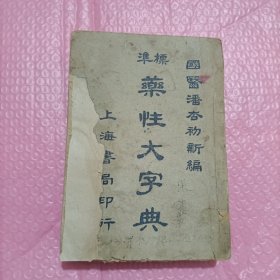 國醫潘杏初新編
標準
藥性大字典
上海書局印行